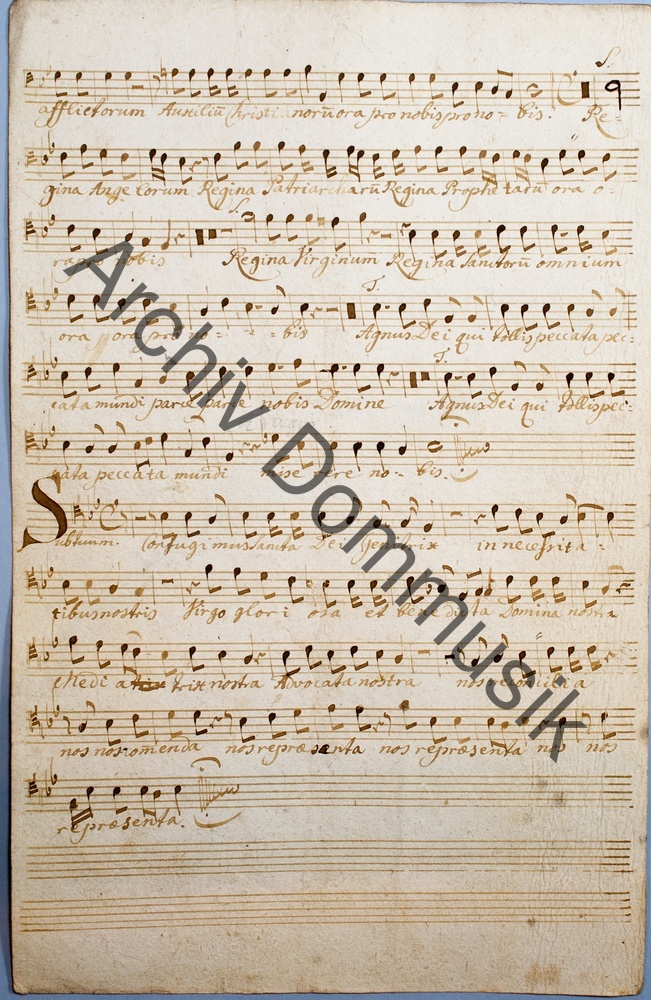 S.
afflictorum Auxiliū Christianorū ora pro nobis pro no- bis. Re-
gina Angelorum Regina Patriarcharū Regina Prophetarū ora o-
S.
ra pro nobis Regina Virginum Regina Sanctorū omnium
T.
ora ora pro no - - - bis Agnus Dei qui tollis peccata pec:
T.
cata mundi parce parce nobis Domine Agnus Dei qui tollis pec:
cata peccata mundi mise rere no- bis.
Subtuum. Confugimus Sancta Dei Genitrix in necessita-
tibus nostris Virgo glori osa et bene dicta Domina nostra
Medi a trix nostra Advocata nostra nos reconcilia
nos nos comenda nos repræsenta nos repræsenta nos nos
repræsenta.
Archiv Dommusik